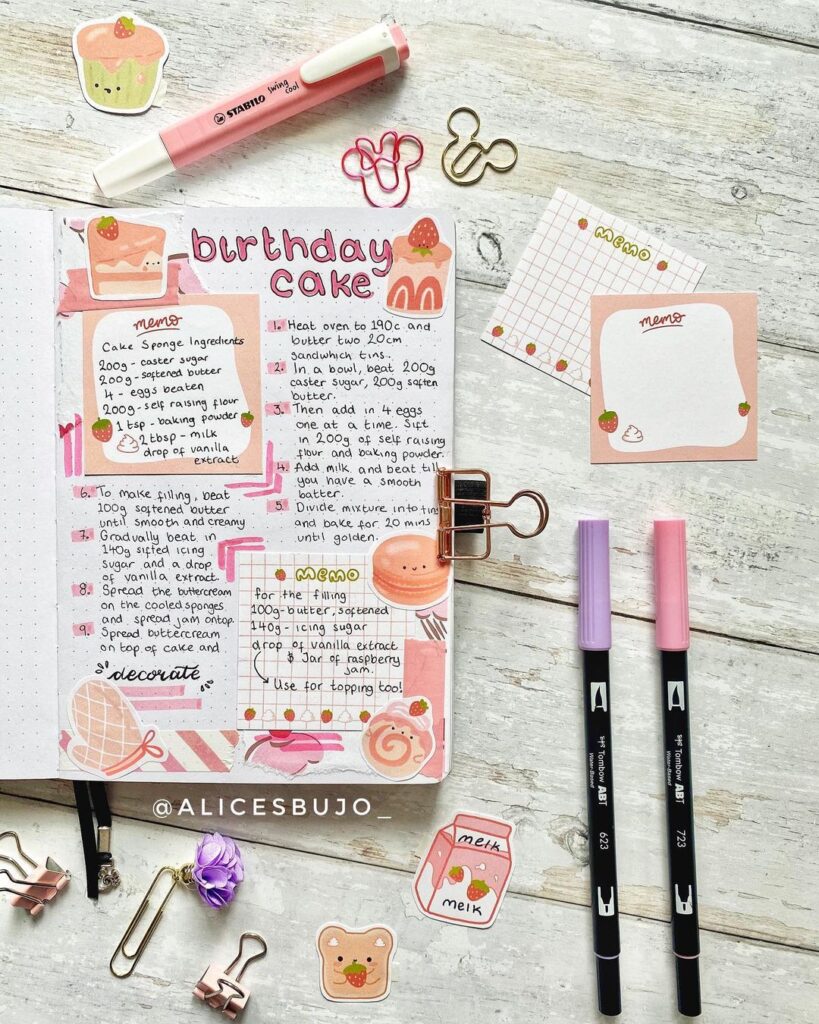 STABILO swing cool
birthday
cake
memo
Cake Sponge Ingredients
200g - caster sugar
200g - softened butter
4 - eggs beaten
200g - self raising flour
1 tsp - baking powder
2 tbsp - milk
drop of vanilla
extract
1. Heat oven to 190c and
butter two 20cm
sandwhich tins.
2. In a bowl, beat 200g
caster sugar, 200g soften
butter.
3. Then add in 4 eggs
one at a time. Sift
in 200g of self raising
flour and baking powder.
4. Add milk and beat till
you have a smooth
batter.
5. Divide mixture into tins
and bake for 20 mins
until golden.
6. To make filling, beat
100g softened butter
until smooth and creamy.
7. Gradually beat in
140g sifted icing
sugar and a drop
of vanilla extract.
8. Spread the buttercream
on the cooled sponges
and spread jam ontop.
9. Spread buttercream
on top of cake and
decorate
MEMO
for the filling
100g - butter, softened
140g - icing sugar
drop of vanilla extract
& Jar of raspberry
jam.
Use for topping too!
MEMO
memo
@ALICESBUJO_
melk
melk
Tombow ABT
Water-Based
623
Tombow ABT
Water-Based
723